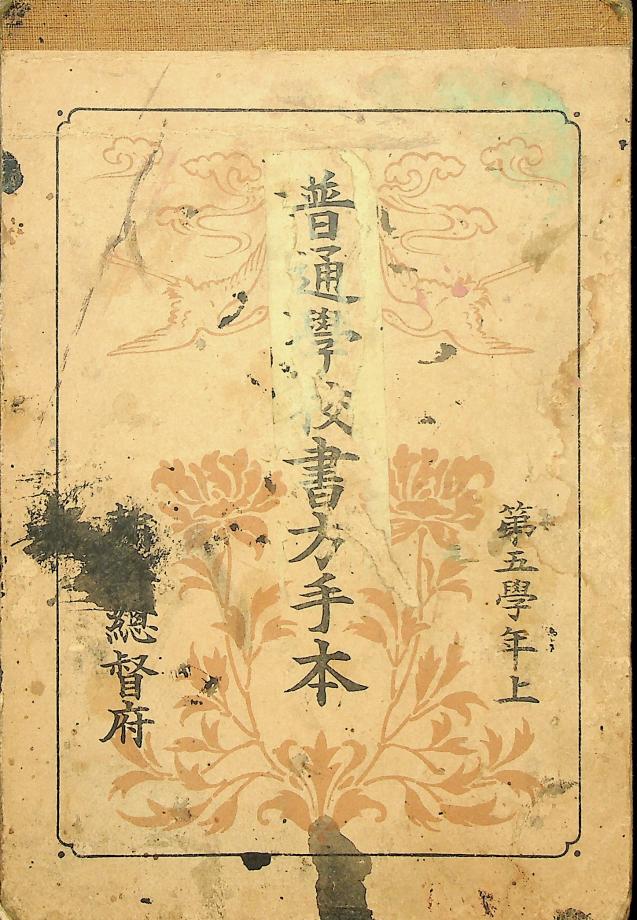 第五學年上
普通學校書方手本
總督府